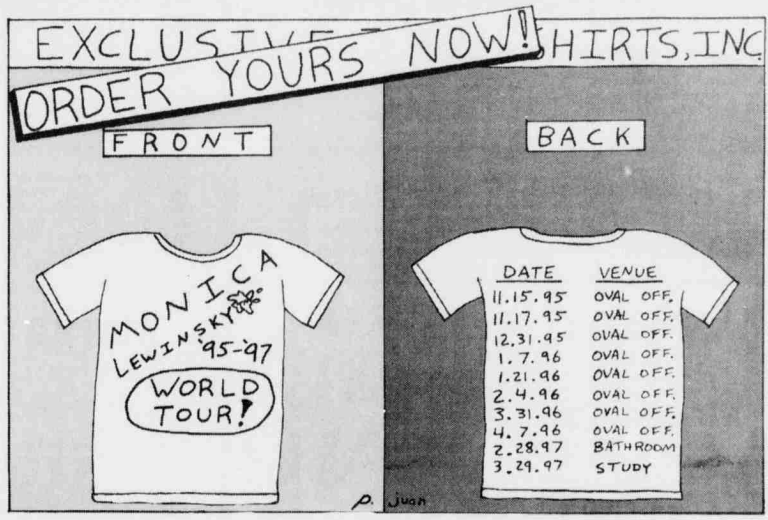 EXCLUSIVE SHIRTS, INC
ORDER YOURS NOW!
FRONT
MONICA
LEWINSKY
'95-'97
WORLD
TOUR!
BACK
DATE VENUE
11.15.95 OVAL OFF.
11.17.95 OVAL OFF.
12.31.95 OVAL OFF.
1.7.96 OVAL OFF.
1.21.96 OVAL OFF.
2.4.96 OVAL OFF.
3.31.96 OVAL OFF.
4.7.96 OVAL OFF.
2.28.97 BATHROOM
3.29.97 STUDY
p. juan